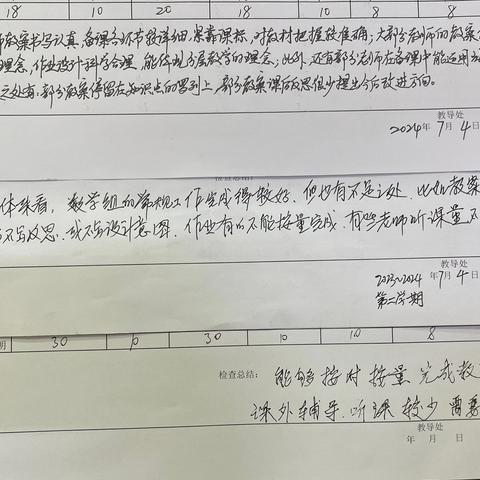 18 10 20 10 8 8
师教案书写认真,备课各环节较详细,紧靠课标,对教材把握较准确;大部分老师的教案
理念,作业设计科学合理,能体现分层教学的理念;此外,还有部分老师在备课中能运用
之处有:部分教案停留在知识点的罗列上,部分教案课后反思很少提出今后改进方向。
教导处
2024年7月4日
检查总结:
体来看,数学组的常规工作完成得较好,但也有不足之处,比如教案
不写反思,或不写设计意图,作业有的不能按量完成,有些老师听课量不
教导处
2023~2024 年7月4日
第二学期
期 30 10 30 10 10 8
检查总结: 能够按时按量完成教
课外辅导,听课较少 需要
教导处
年 月 日